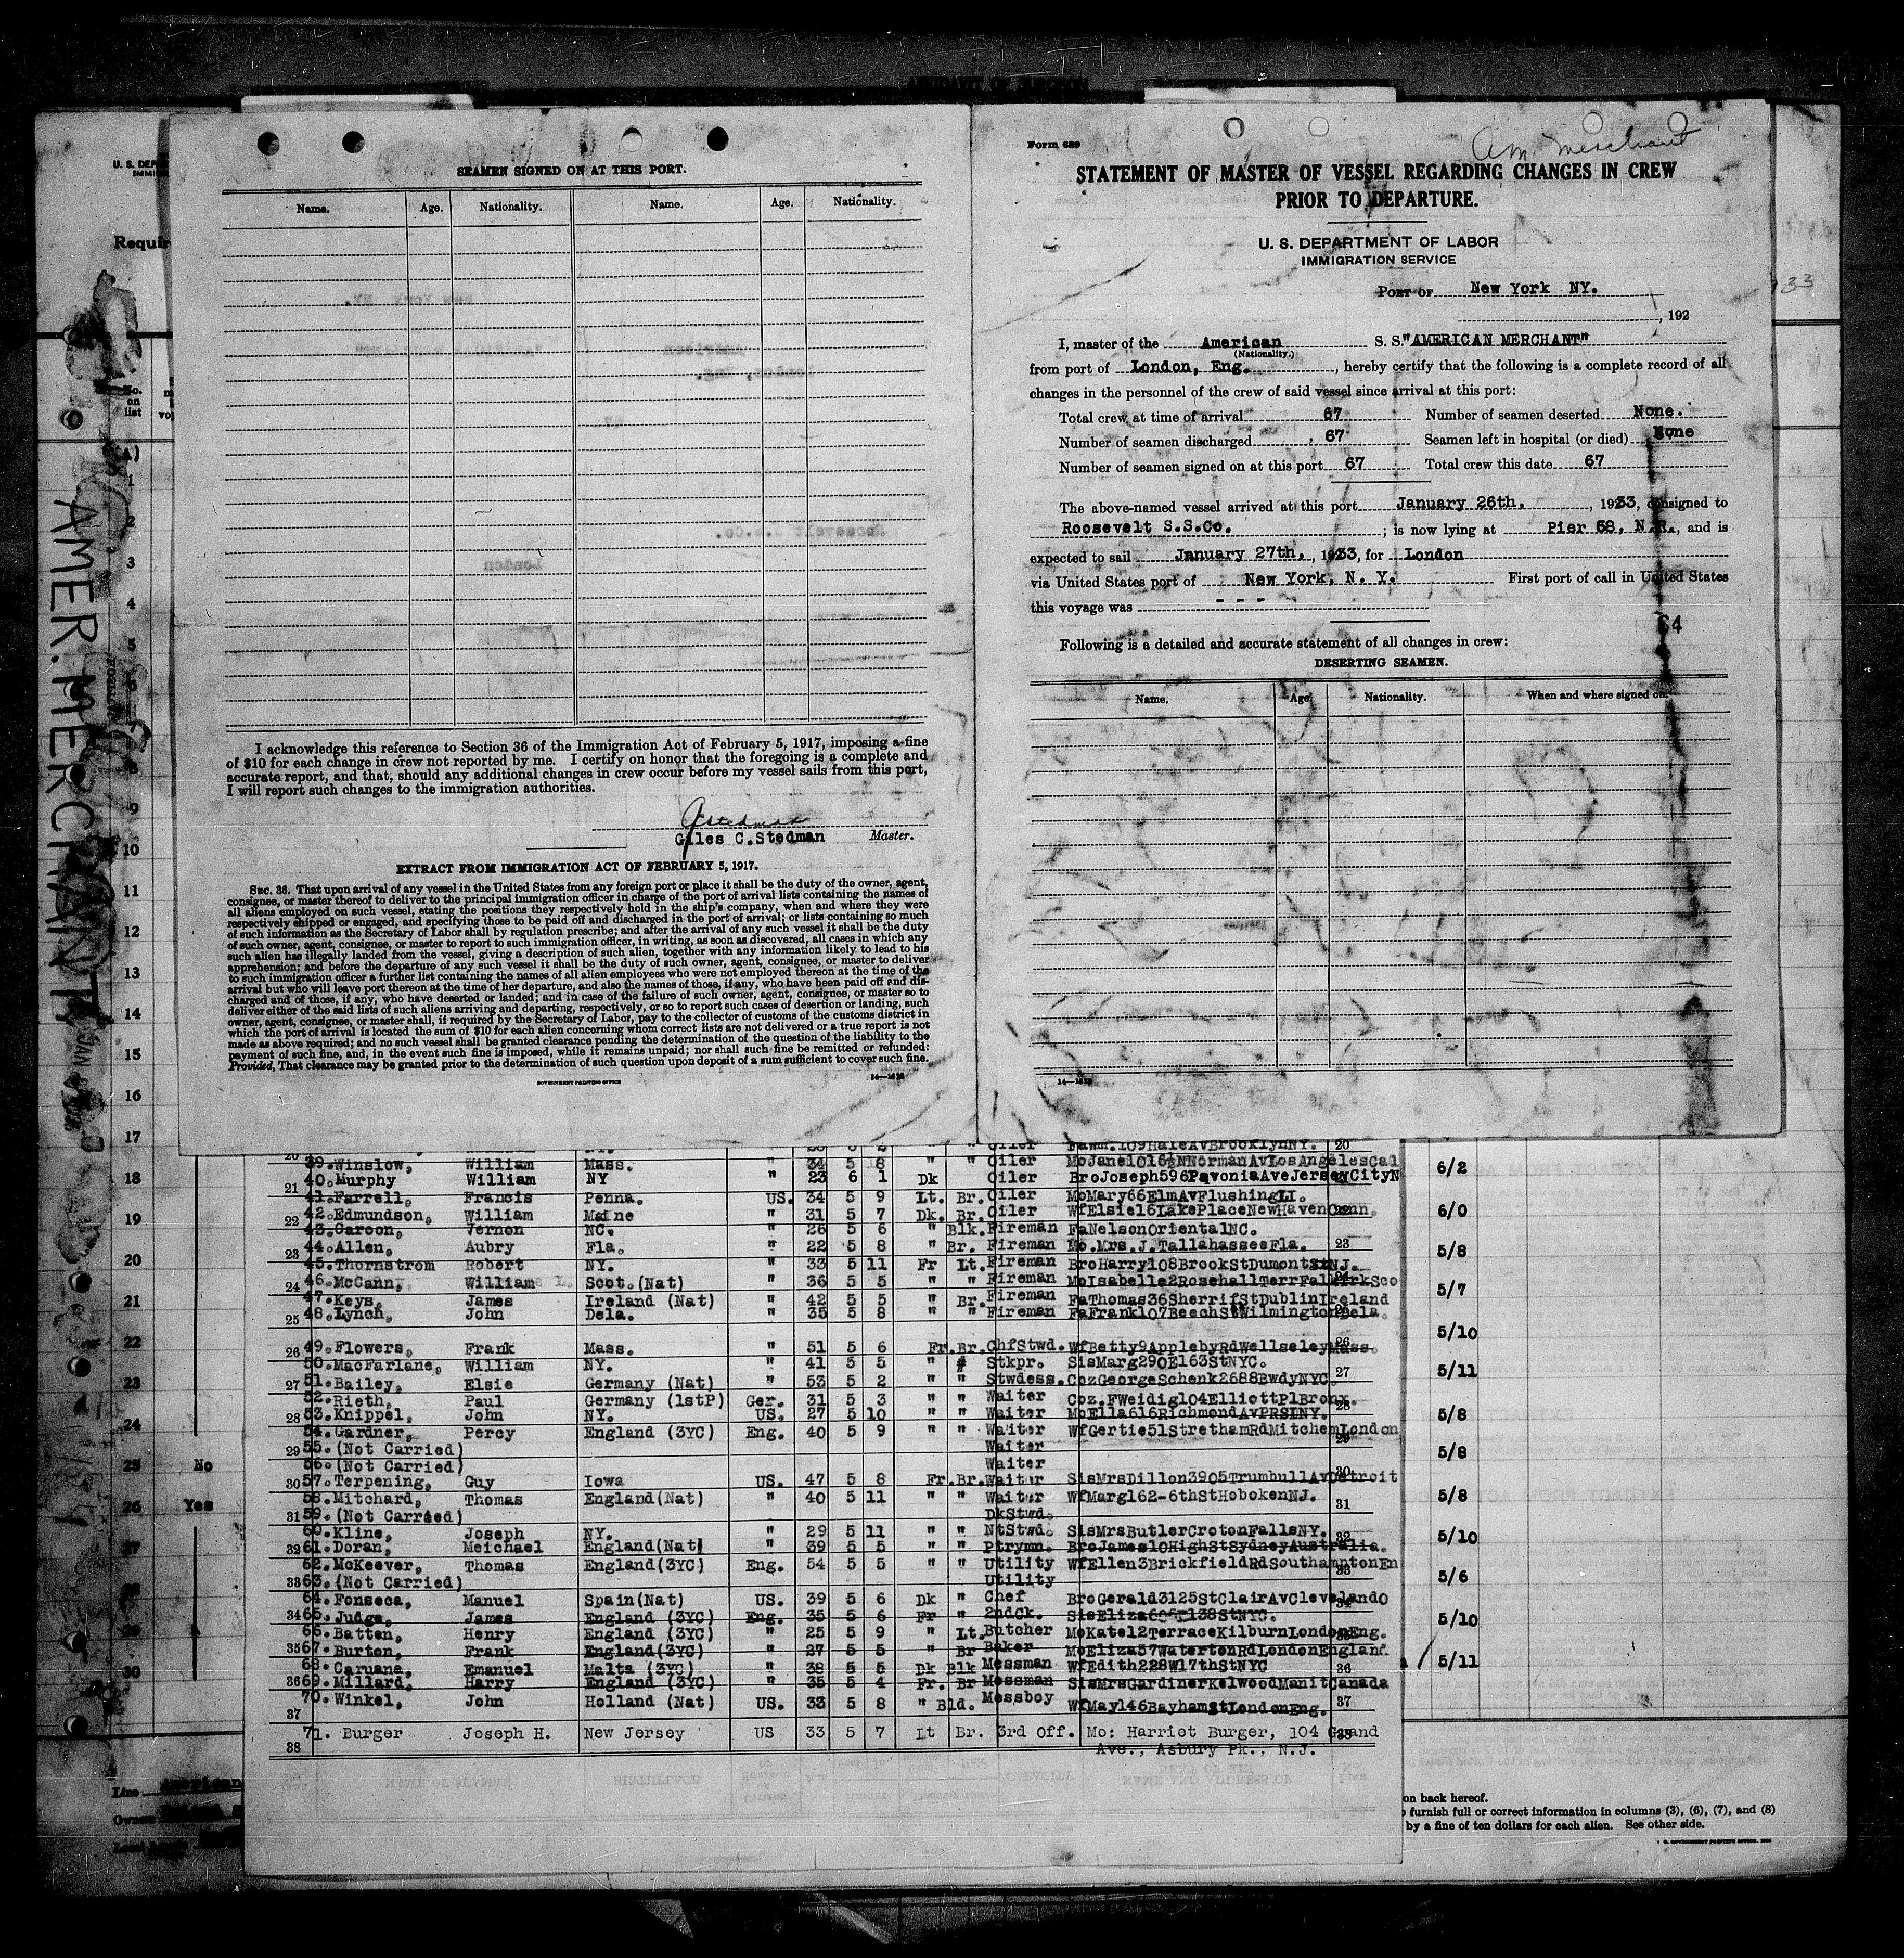 SEAMEN SIGNED ON AT THIS PORT.
Name. Age. Nationality. Name. Age. Nationality.
I acknowledge this reference to Section 36 of the Immigration Act of February 5, 1917, imposing a fine
of $10 for each change in crew not reported by me. I certify on honor that the foregoing is a complete and
accurate report, and that, should any additional changes in crew occur before my vessel sails from this port,
I will report such changes to the immigration authorities.
Giles C. Stedman Master.
EXTRACT FROM IMMIGRATION ACT OF FEBRUARY 5, 1917.
SEC. 36. That upon arrival of any vessel in the United States from any foreign port or place it shall be the duty of the owner, agent,
consignee, or master thereof to deliver to the principal immigration officer in charge of the port of arrival lists containing the names of
all aliens employed on such vessel, stating the positions they respectively hold in the ship's company, when and where they were
respectively shipped or engaged, and specifying those to be paid off and discharged in the port of arrival; or lists containing so much
of such information as the Secretary of Labor shall by regulation prescribe; and after the arrival of any such vessel it shall be the duty
of such owner, agent, consignee, or master to report to such immigration officer, in writing, as soon as discovered, all cases in which any
such alien has illegally landed from the vessel, giving a description of such alien, together with any information likely to lead to his
apprehension; and before the departure of any such vessel it shall be the duty of such owner, agent, consignee, or master to deliver
to such immigration officer a further list containing the names of all alien employees who were not employed thereon at the time of the
arrival but who will leave port thereon at the time of her departure, and also the names of those, if any, who have been paid off and dis-
charged and of those, if any, who have deserted or landed; and in case of the failure of such owner, agent, consignee, or master so to
deliver either of the said lists of such aliens arriving and departing, respectively, or so to report such cases of desertion or landing, such
owner, agent, consignee, or master shall, if required by the Secretary of Labor, pay to the collector of customs of the customs district in
which the port of arrival is located the sum of $10 for each alien concerning whom correct lists are not delivered or a true report is not
made as above required; and no such vessel shall be granted clearance pending the determination of the question of the liability to the
payment of such fine, and, in the event such fine is imposed, while it remains unpaid; nor shall such fine be remitted or refunded:
Provided, That clearance may be granted prior to the determination of such question upon deposit of a sum sufficient to cover such fine.
GOVERNMENT PRINTING OFFICE
Form 689
Am Merchant
STATEMENT OF MASTER OF VESSEL REGARDING CHANGES IN CREW
PRIOR TO DEPARTURE.
U. S. DEPARTMENT OF LABOR
IMMIGRATION SERVICE
PORT OF New York NY.
, 192
I, master of the American S. S. "AMERICAN MERCHANT"
(Nationality.)
from port of London, Eng. , hereby certify that the following is a complete record of all
changes in the personnel of the crew of said vessel since arrival at this port:
Total crew at time of arrival 67 Number of seamen deserted None.
Number of seamen discharged 67 Seamen left in hospital (or died) None
Number of seamen signed on at this port 67 Total crew this date 67
The above-named vessel arrived at this port January 26th, , 1933, consigned to
Roosevelt S.S.Co. ; is now lying at Pier 58, N.R., and is
expected to sail January 27th, , 1933, for London
via United States port of New York, N. Y. First port of call in United States
this voyage was - - -
64
Following is a detailed and accurate statement of all changes in crew:
DESERTING SEAMEN.
Name. Age. Nationality. When and where signed on.
AMER. MERCHANT
39. Winslow, William Mass. " 34 5 8 " " Oiler
40. Murphy William NY " 23 6 1 Dk Oiler BroJoseph596PavoniaAveJerseyCityN
41. Farrell, Francis Penna. US. 34 5 9 Lt. Br. Oiler MoMary66ElmAvFlushingLI.
42. Edmundson, William Maine " 31 5 7 Dk. Br. Oiler WfElsie16LakePlaceNewHavenConn.
43. Caroon, Vernon NC. " 26 5 6 " Blk. Fireman FaNelsonOrientalNC.
44. Allen, Aubry Fla. " 22 5 8 " Br. Fireman Mo.Mrs.J.TallahasseeFla.
45. Thornstrom Robert NY. " 33 5 11 Fr Lt. Fireman BroHarry108BrookStDumontNJ.
46. McCann, William Scot.(Nat) " 36 5 5 " " Fireman MoIsabelle2RosehallTerrFalkirkSco
47. Keys, James Ireland (Nat) " 42 5 5 " Br. Fireman FaThomas36SherrifStDublinIreland
48. Lynch, John Dela. " 35 5 8 " " Fireman FaFrank107BeechStWilmingtonDela.
49. Flowers, Frank Mass. " 51 5 6 Fr. Br. ChfStwd. WfBetty9ApplebyRdWellseleyMass.
50. MacFarlane, William NY. " 41 5 5 " # Stkpr. SisMarg290E163StNYC.
51. Bailey, Elsie Germany (Nat) " 53 5 2 " " Stwdess. CozGeorgeSchenk2688BwdyNYC
52. Rieth, Paul Germany (1stP) Ger. 31 5 3 " " Waiter Coz.FWeidig104ElliottPlBronx.
53. Knippel, John NY. US. 27 5 10 " " Waiter MoElla616RichmondAvPRSINY.
54. Gardner, Percy England (3YC) Eng. 40 5 9 " " Waiter WfGertie51StrethamRdMitchemLondon
55. (Not Carried) Waiter
56. (Not Carried) Waiter
57. Terpening, Guy Iowa US. 47 5 8 Fr. Br. Waiter SisMrsDillon3905TrumbullAvDetroit
58. Mitchard, Thomas England(Nat) " 40 5 11 " " Waiter WfMarg162-6thStHobokenNJ.
59. (Not Carried) DkStwd.
60. Kline, Joseph NY. " 29 5 11 " " NtStwd. SisMrsButlerCrotonFallsNY.
61. Doran, Meichael England(Nat) " 39 5 5 " " Ptrymn. BroJames10HighStSydneyAustralia.
62. McKeever, Thomas England(3YC) Eng. 54 5 5 " " Utility WfEllen3BrickfieldRdSouthamptonEn
63. (Not Carried) Utility
64. Fonseca, Manuel Spain(Nat) US. 39 5 6 Dk " Chef BroGerald3125StClairAvClevelandO
65. Judge, James England (3YC) Eng. 35 5 6 Fr " 2ndCk.
66. Batten, Henry England (3YC) " 25 5 9 " Lt. Butcher MoKate12TerraceKilburnLondonEng.
67. Burton, Frank England(3YC) " 27 5 5 " Br Baker MoEliza57WatertonRdLondonEngland
68. Caruana, Emanuel Malta (3YC) " 38 5 5 Dk Blk Messman WfEdith228W17thStNYC
69. Millard, Harry England (3YC) " 35 5 4 Fr. Br Messman SisMrsGardinerKelwoodManitCanada
70. Winkel, John Holland (Nat) US. 33 5 8 " Bld. Messboy WfMay146BayhamStLondonEng.
71. Burger Joseph H. New Jersey US 33 5 7 Lt Br. 3rd Off. Mo: Harriet Burger, 104 Grand
Ave., Asbury Pk., N.J.
6/2
6/0
5/8
5/7
5/10
5/11
5/8
5/8
5/8
5/10
5/6
5/10
5/11
No
Yes
on back hereof.
furnish full or correct information in columns (3), (6), (7), and (8)
by a fine of ten dollars for each alien. See other side.